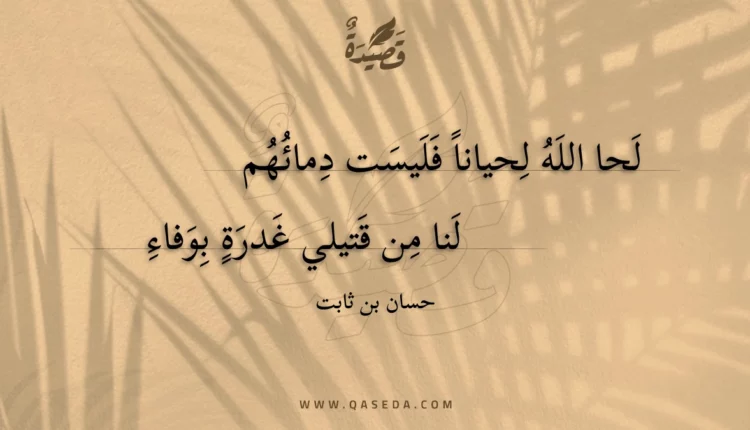 قَصِيْدَةٌ
لَحا اللَهُ لِحياناً فَلَيسَت دِمائُهُم
لَنا مِن قَتيلي غَدرَةٍ بِوَفاءِ
حسان بن ثابت
WWW.QASEDA.COM